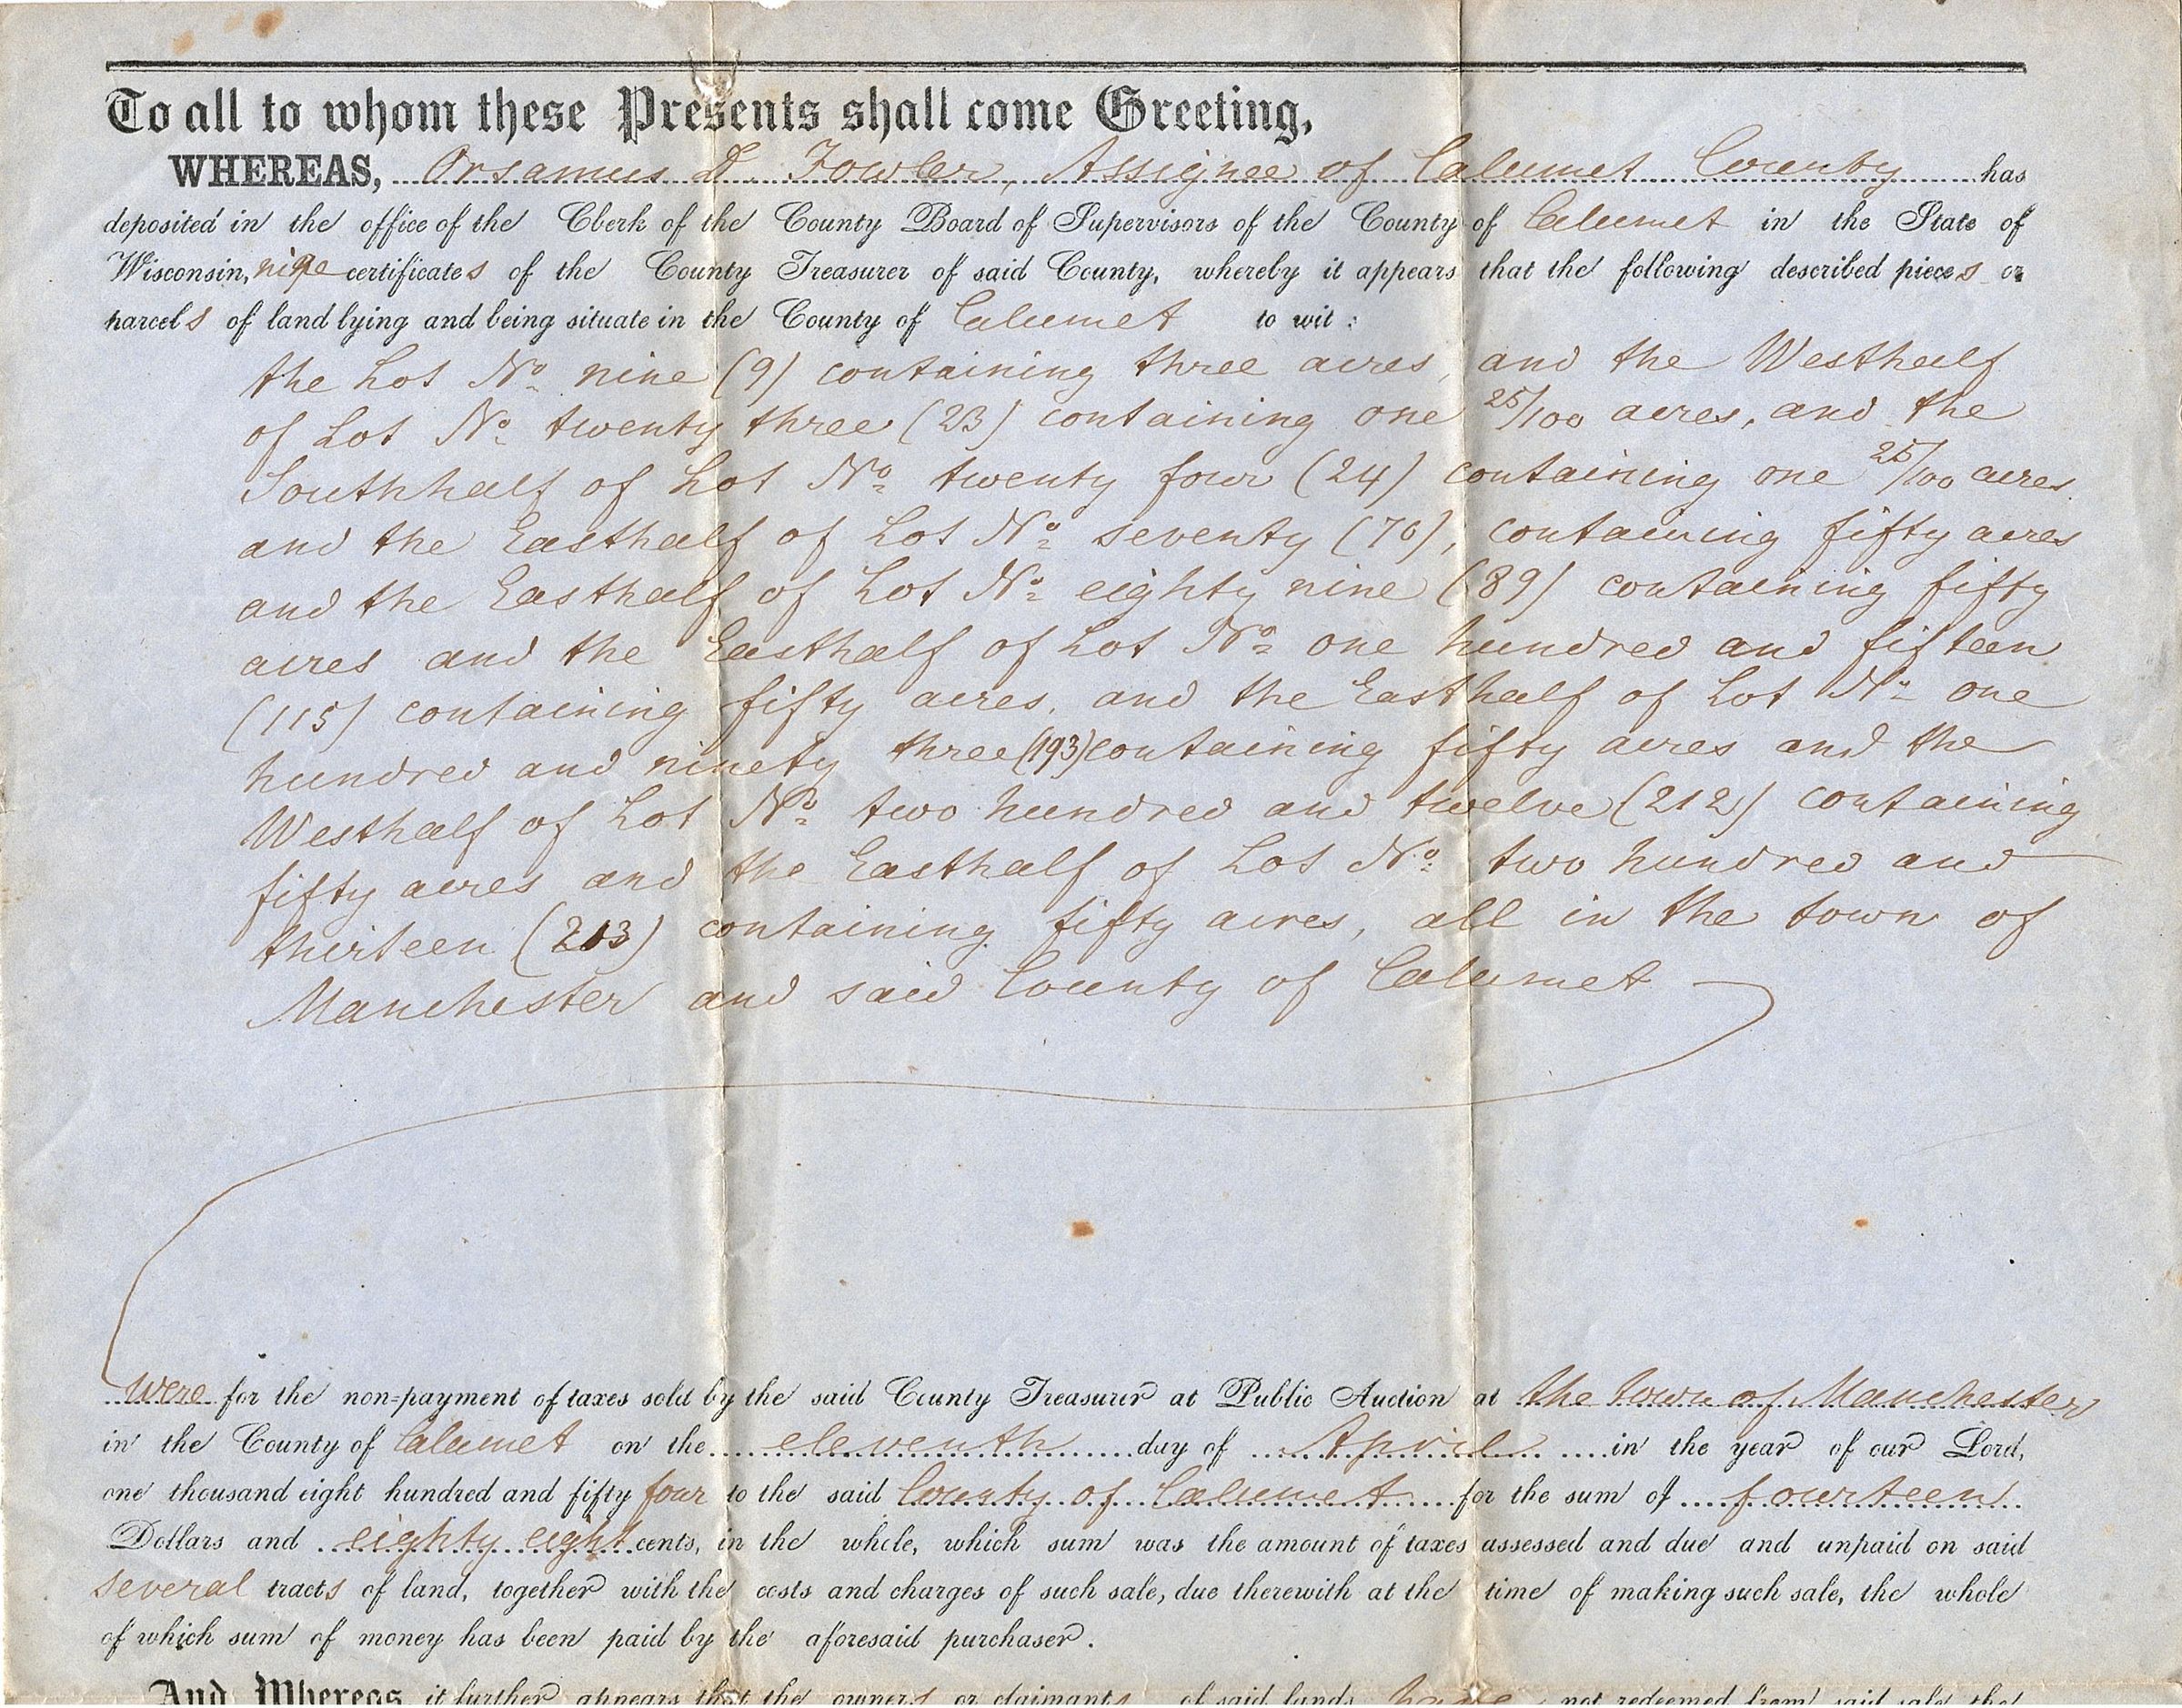 To all to whom these Presents shall come Greeting,
WHEREAS, Orsamus D. Fowler, Assignee of Calumet County has
deposited in the office of the Clerk of the County Board of Supervisors of the County of Calumet in the State of
Wisconsin, nine certificates of the County Treasurer of said County, whereby it appears that the following described pieces or
parcels of land lying and being situate in the County of Calumet to wit:
the Lot No. nine (9) containing three acres, and the Westhalf
of Lot No. twenty three (23) containing one 25/100 acres, and the
Southhalf of Lot No. twenty four (24) containing one 25/100 acres
and the Easthalf of Lot No. seventy (70), containing fifty acres
and the Easthalf of Lot No. eighty nine (89) containing fifty
acres and the Easthalf of Lot No. one hundred and fifteen
(115) containing fifty acres, and the Easthalf of Lot No. one
hundred and ninety three (193) containing fifty acres and the
Westhalf of Lot No. two hundred and twelve (212) containing
fifty acres and the Easthalf of Lot No. two hundred and
thirteen (213) containing fifty acres, all in the town of
Manchester and said County of Calumet
were for the non-payment of taxes sold by the said County Treasurer at Public Auction at the town of Manchester
in the County of Calumet on the eleventh day of April in the year of our Lord,
one thousand eight hundred and fifty four to the said County of Calumet for the sum of fourteen
Dollars and eighty eight cents, in the whole, which sum was the amount of taxes assessed and due and unpaid on said
several tracts of land, together with the costs and charges of such sale, due therewith at the time of making such sale, the whole
of which sum of money has been paid by the aforesaid purchaser.
And Whereas it further appears that the owners or claimants of said lands have not redeemed from said sale the